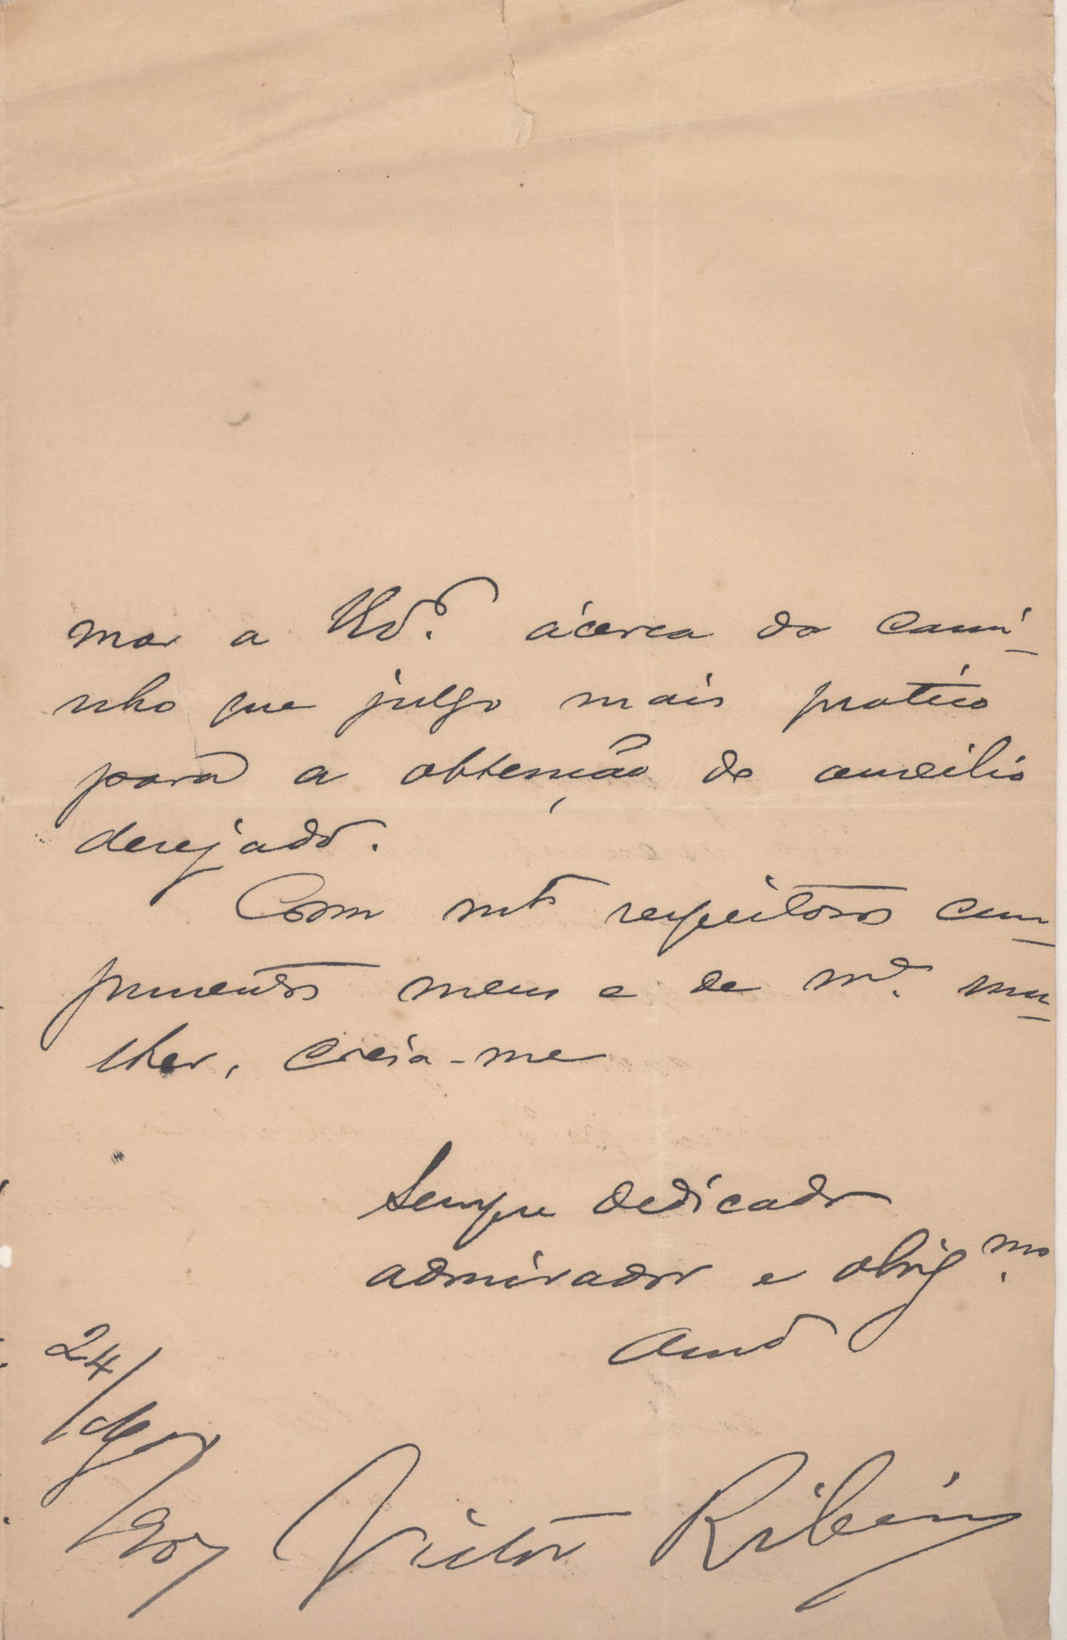 mar a V.Exª. ácerca do cami-
nho que julgo mais pratico
para a obtenção do auxilio
desejado.
Com mtos respeitosos cum-
primentos meus e de mª. mu-
lher, creia-me
Sempre dedicado
admirador e obrigmo.
amo
24/
Agos
/907
Victor Ribeiro